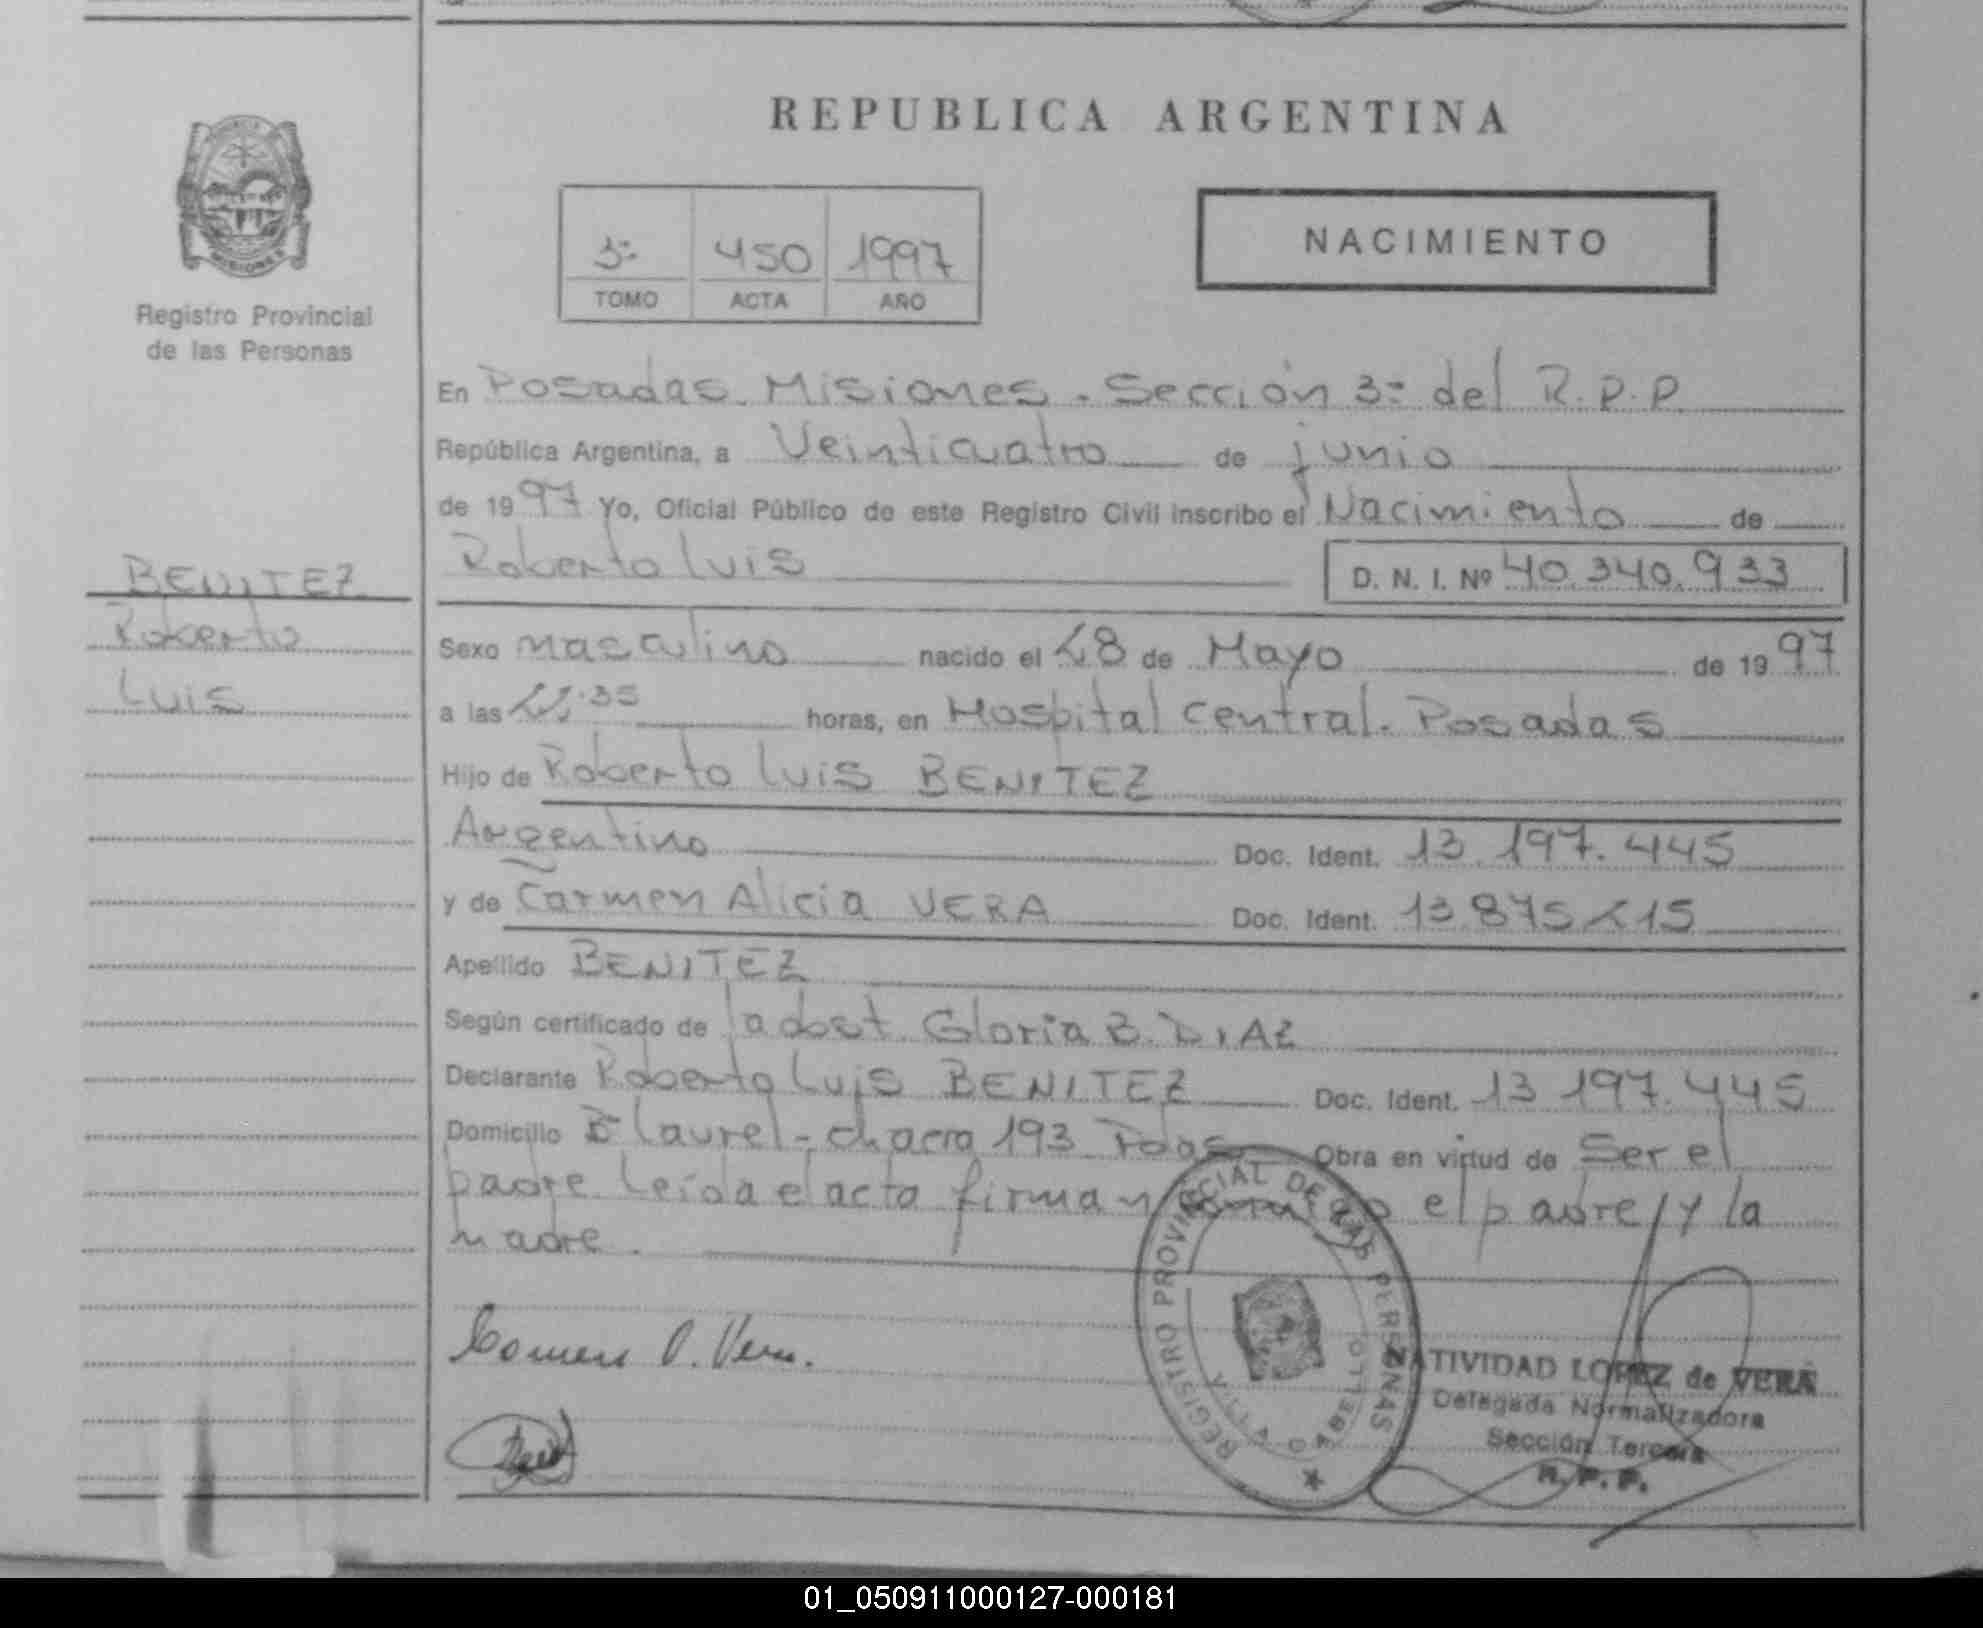 REPUBLICA ARGENTINA
MISIONES
Registro Provincial
de las Personas
3º 450 1997
TOMO ACTA AÑO
NACIMIENTO
En Posadas. Misiones. Sección 3º del R.P.P.
República Argentina, a Veinticuatro de junio
de 1997 Yo, Oficial Público de este Registro Civil inscribo el Nacimiento de
Roberto Luis D. N. I. Nº 40.340.933
BENITEZ
Roberto
Luis
Sexo masculino nacido el 28 de Mayo de 1997
a las 22.35 horas, en Hospital Central. Posadas
Hijo de Roberto Luis BENITEZ
Argentino Doc. Ident. 13.197.445
y de Carmen Alicia VERA Doc. Ident. 13.875.215
Apellido BENITEZ
Según certificado de la obst. Gloria B. DIAZ
Declarante Roberto Luis BENITEZ Doc. Ident. 13.197.445
Domicilio Bº Laurel - chacra 193 Pdas Obra en virtud de Ser el
padre. Leída el acta firman conmigo el padre/y la
madre.
Carmen A. Vera.
REGISTRO PROVINCIAL DE LAS PERSONAS
VILLA CABELLO
NATIVIDAD LOPEZ de VERA
Delegada Normalizadora
Sección Tercera
R. P. P.
01_050911000127-000181